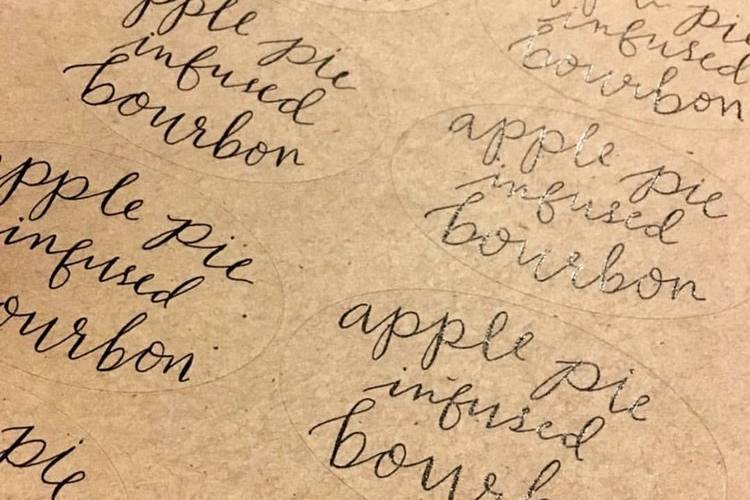 apple pie
infused
bourbon
apple pie
infused
bourbon
apple pie
infused
bourbon
apple pie
infused
bourbon
apple pie
infused
pie